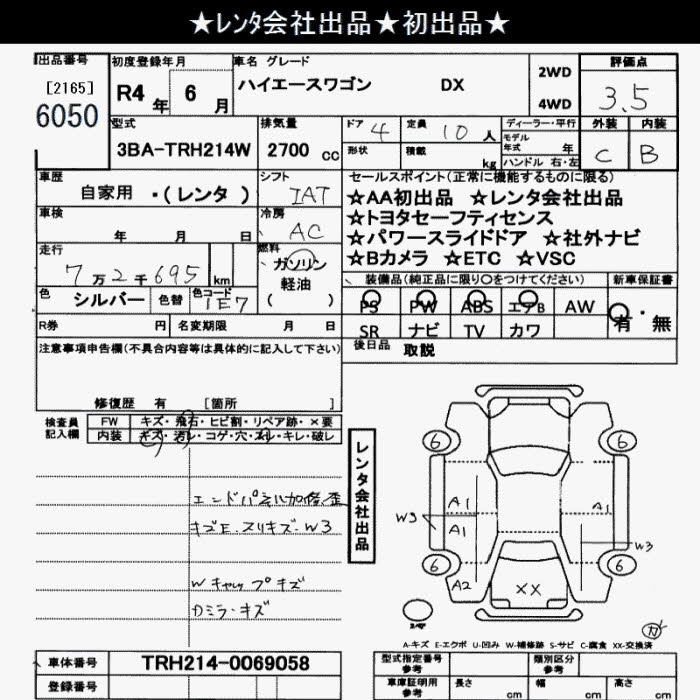 ★レンタ会社出品★初出品★
出品番号 初度登録年月 車名 グレード 評価点
[2165]
6050
R4年 6月 ハイエースワゴン DX
2WD
4WD
3.5
型式 排気量 ドア 4 定員 10人 ディーラー・平行 外装 内装
3BA-TRH214W 2700cc
形状 積載 kg
モデル年式 年
ハンドル 右・左
C B
車歴 自家用 ・(レンタ) シフト IAT
セールスポイント(正常に機能するものに限る)
☆AA初出品 ☆レンタ会社出品
☆トヨタセーフティセンス
☆パワースライドドア ☆社外ナビ
☆Bカメラ ☆ETC ☆VSC
車検 年 月 日 冷房 AC
走行 7万2千695 km 燃料 ガソリン
軽油
( )
色 シルバー 色替 色コード 1E7
装備品(純正品に限り○をつけてください) 新車保証書
PS PW ABS エアB AW 有・無
SR ナビ TV カワ
R券 円 名変期限 月 日
後日品 取説
注意事項申告欄(不具合内容等は具体的に記入して下さい)
修復歴 有 [箇所 ]
検査員記入欄 FW キズ・飛石・ヒビ割・リペア跡・×要
内装 キズ・汚レ・コゲ・穴・スレ・キレ・破レ
レンタ会社出品
エンドパネル加修歪
キズE.スリキズ-W3
Wキャップキズ
カミラ-キズ
6 6
A1 A1
W3 A1 W3
6 6
A2 XX
A-キズ E-エクボ U-凹み W-補修跡 S-サビ C-腐食 XX-交換済
車体番号 TRH214-0069058
登録番号
型式指定番号 参考 類別区分 参考
車庫証明用 参考 長さ cm 幅 cm 高さ cm